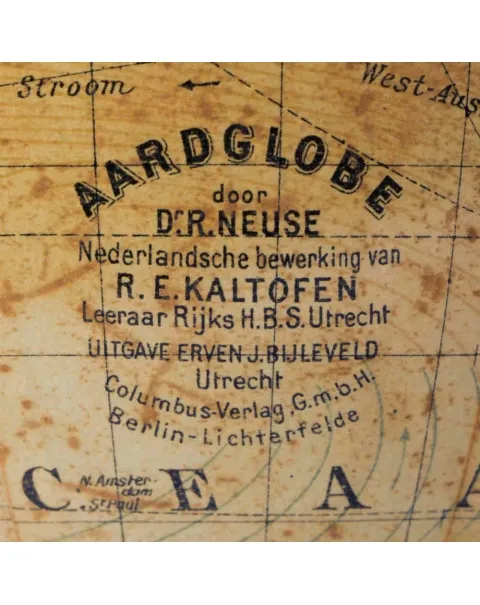 Stroom
West-Aus
AARDGLOBE
door
Dr. R. NEUSE
Nederlandsche bewerking van
R. E. KALTOFEN
Leeraar Rijks H.B.S. Utrecht
UITGAVE ERVEN J. BIJLEVELD
Utrecht
Columbus-Verlag, G.m.b.H.
Berlin-Lichterfelde
C E A
N. Amster-
dam
St Paul